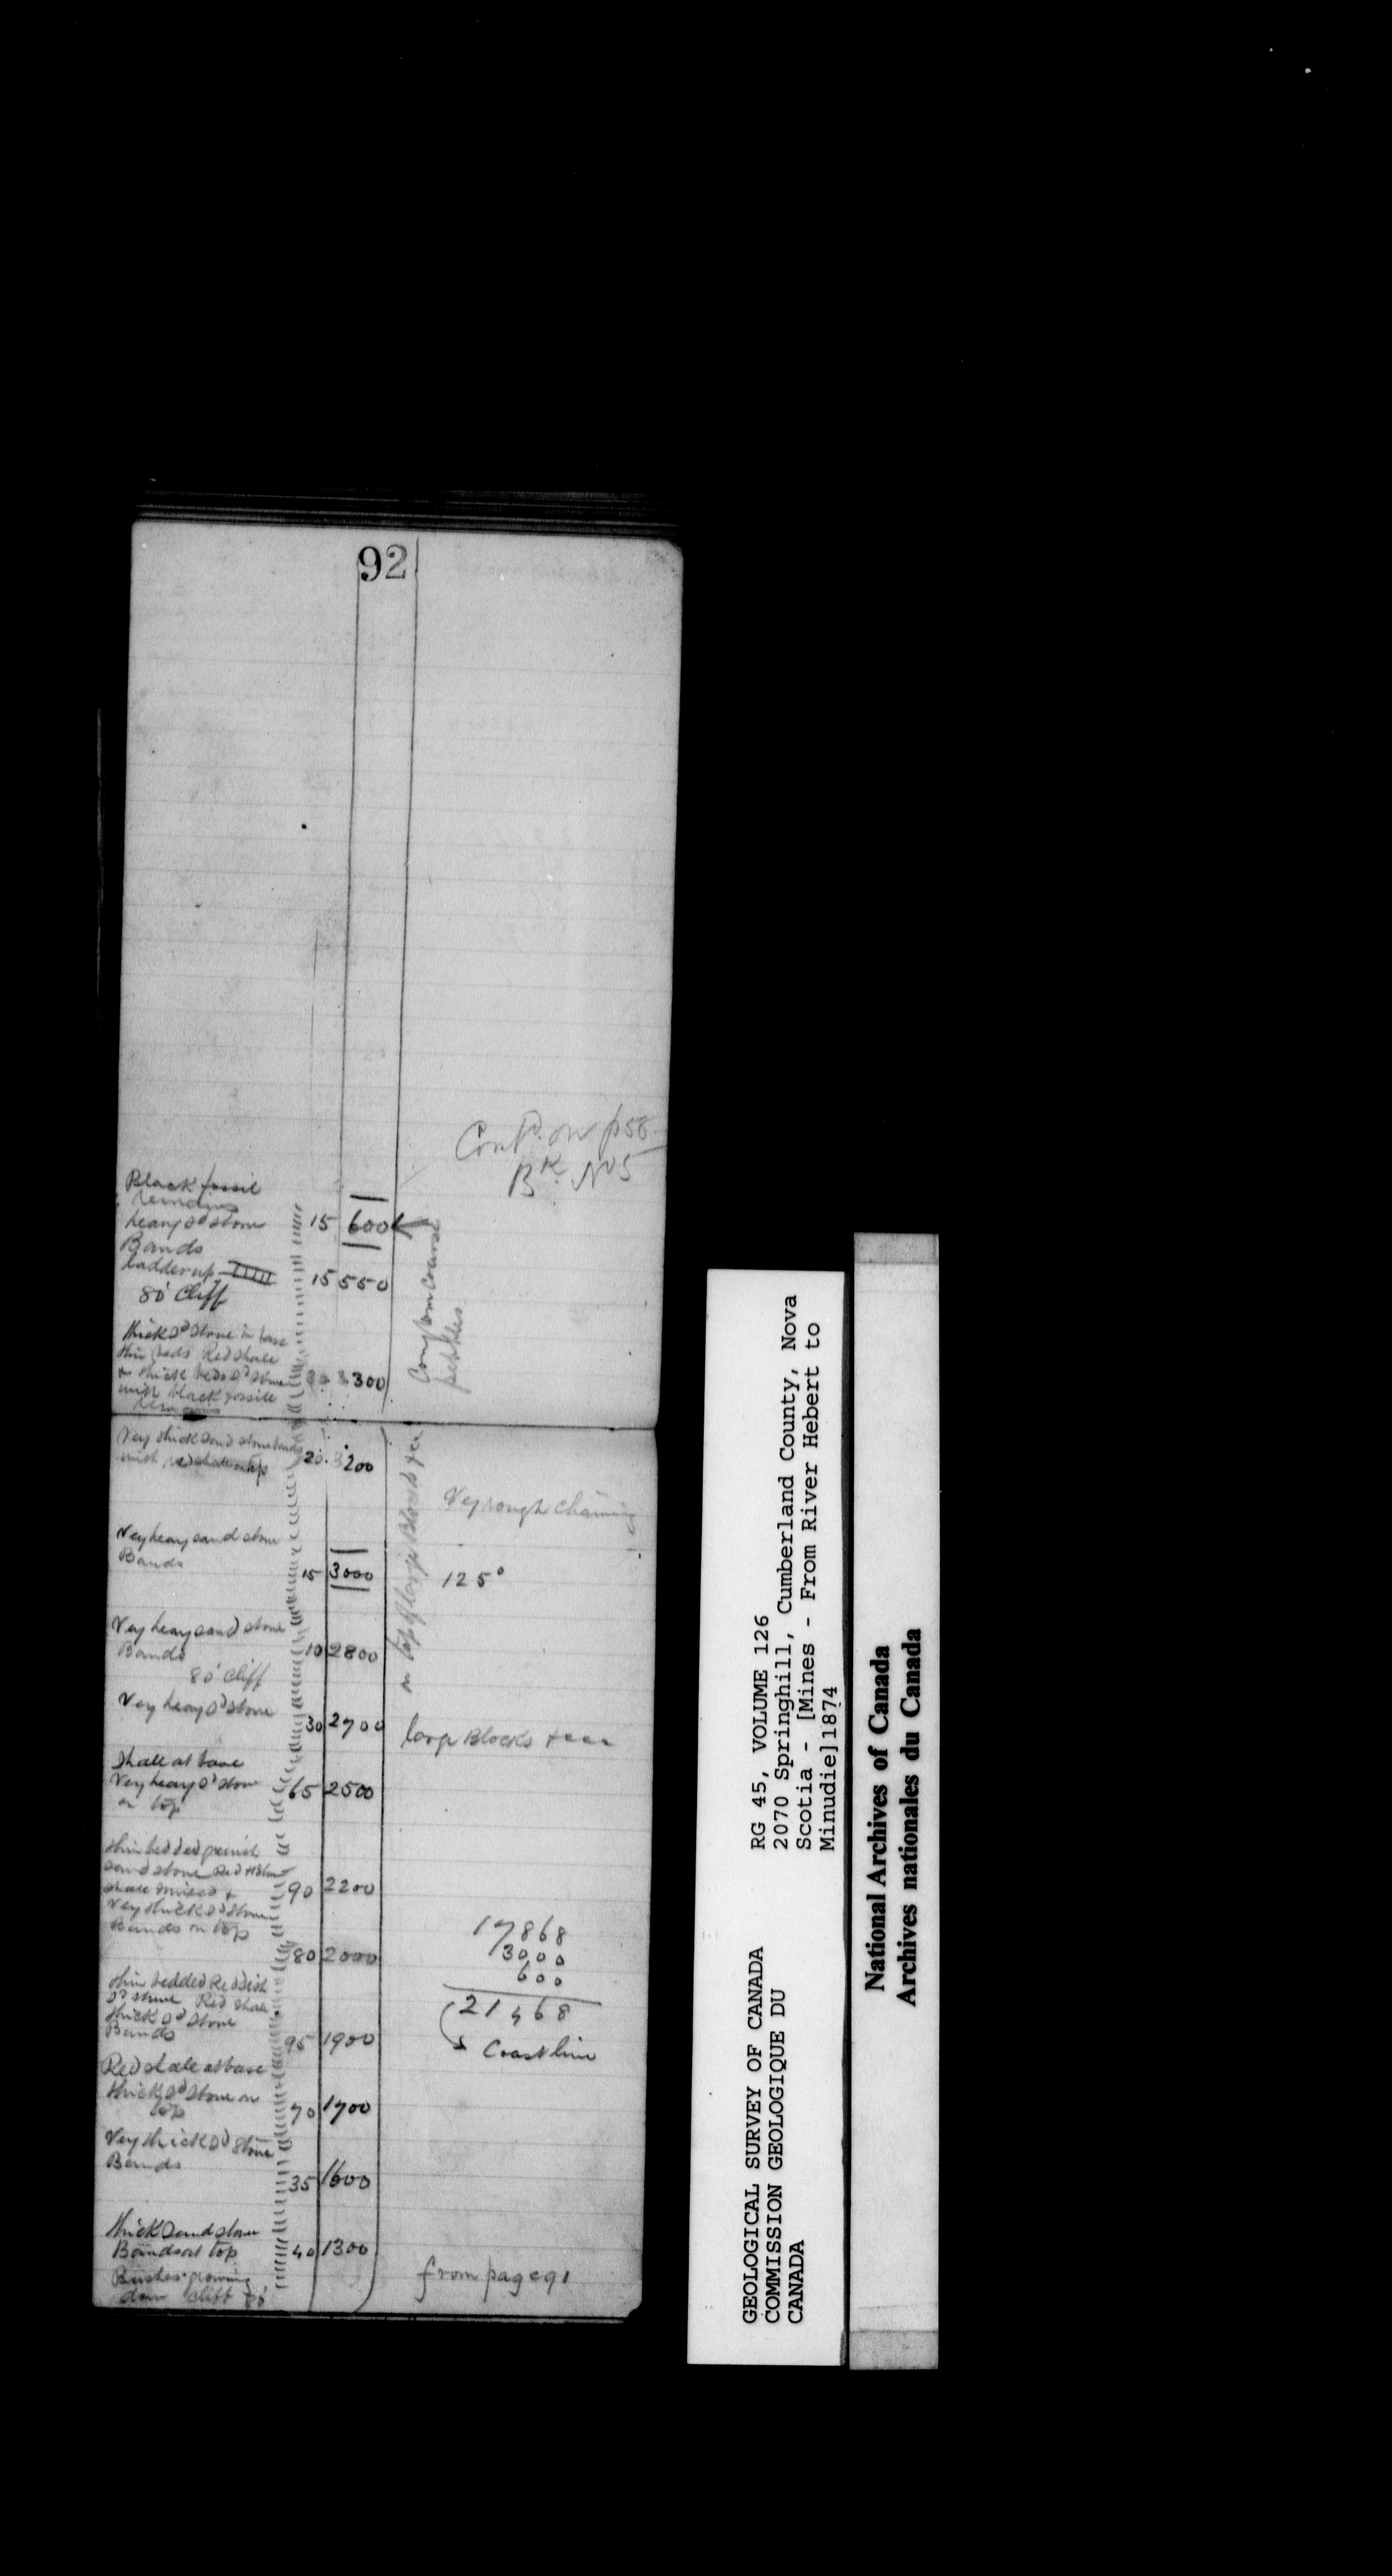 92
Cont'd. on p58
Bk. No 5
Black fossil
remains
heavy Sd stone
Bands
15 600
ladder up
80' Cliff
15 550
Thick Sd stone in base
thin beds Red shale
& thick beds Sd stone
with black fossile
remains
300
coarse
pebbles
Very thick Sand stone bands
with red shale on top
20 200
Very rough chaining
on top of large Blocks
Very heavy sand stone
Bands
15 3000
125°
Very heavy sand stone
Bands
10 2800
80' Cliff
Very heavy Sd stone
30 2700
large Blocks
Shale at base
Very heavy Sd stone
on top
65 2500
thin bedded greenish
sandstone Red
shale mixed &
Very thick Sd stone
Bands on top
90 2200
80 2000
17868
3000
600
21468
Coast line
thin bedded Reddish
Sd stone Red shale
thick Sd stone
Bands
95 1900
Red shale at base
thick Sd stone on
top
70 1700
Very thick Sd stone
Bands
35 1600
thick Sand stone
Bands at top
40 1300
Bushes growing
down cliff
from page 91
GEOLOGICAL SURVEY OF CANADA
COMMISSION GEOLOGIQUE DU
CANADA
RG 45, VOLUME 126
2070 Springhill, Cumberland County, Nova
Scotia - [Mines - From River Hebert to
Minudie]1874
National Archives of Canada
Archives nationales du Canada